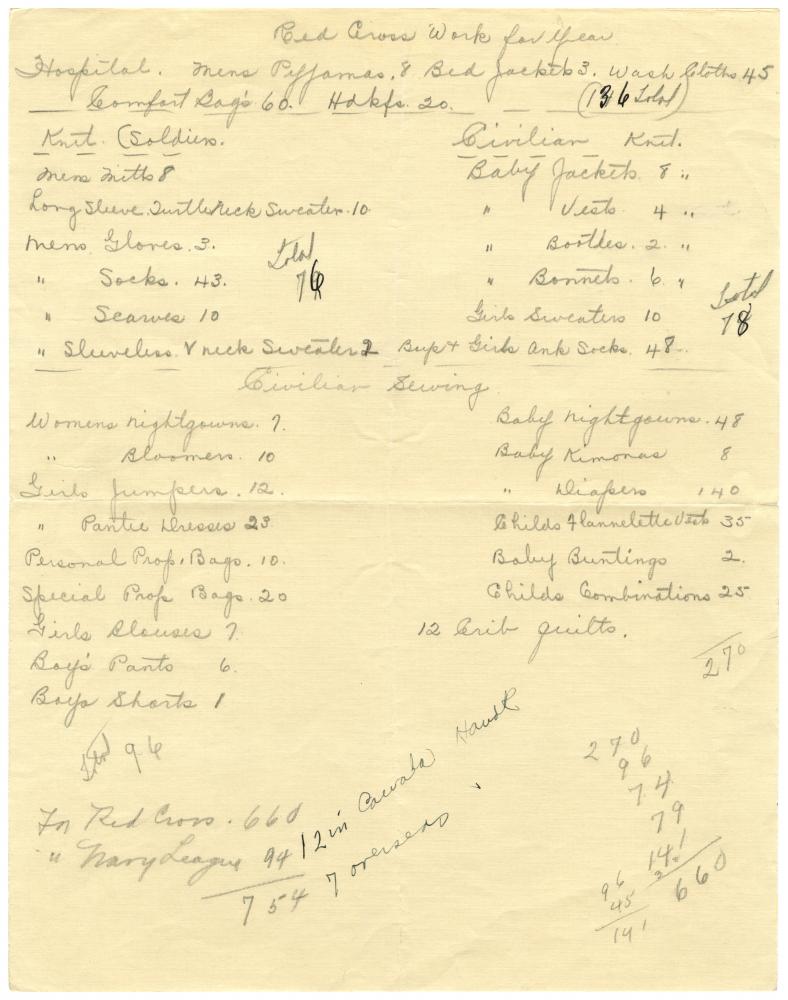 Red Cross Work for Year
Hospital. Mens Pyjamas. 8 Bed Jackets 3. Wash Cloths 45
Comfort Bags 60. Hdkfs. 20. (136 Total)
Knit. (Soldiers.
Mens Mitts 8
Long Sleeve Turtle Neck Sweater. 10
Mens Gloves. 3.
" Socks. 43.
" Scarves 10
" Sleeveless V neck Sweaters 2
Total
76
Civilian Knit.
Baby Jackets 8 "
" Vests 4 "
" Bootees. 2. "
" Bonnets. 6. "
Girls Sweaters 10
Boys + Girls Ank Socks. 48.
Total
78
Civilian Sewing
Womens nightgowns. 7.
" Bloomers. 10
Girls Jumpers. 12.
" Pantie Dresses 23
Personal Prop. Bags. 10.
Special Prop Bags. 20
Girls Blouses 7
Boy's Pants 6.
Boys Shorts 1
Total 96
Baby nightgowns. 48
Baby Kimonas 8
" Diapers 140
Childs Flannelette Vests 35
Baby Buntings 2.
Childs Combinations 25
12 Crib quilts.
270
For Red Cross. 660
" Navy League 94
754
12 in Canada
7 overseas
270
96
74
79
141
660
96
45
141